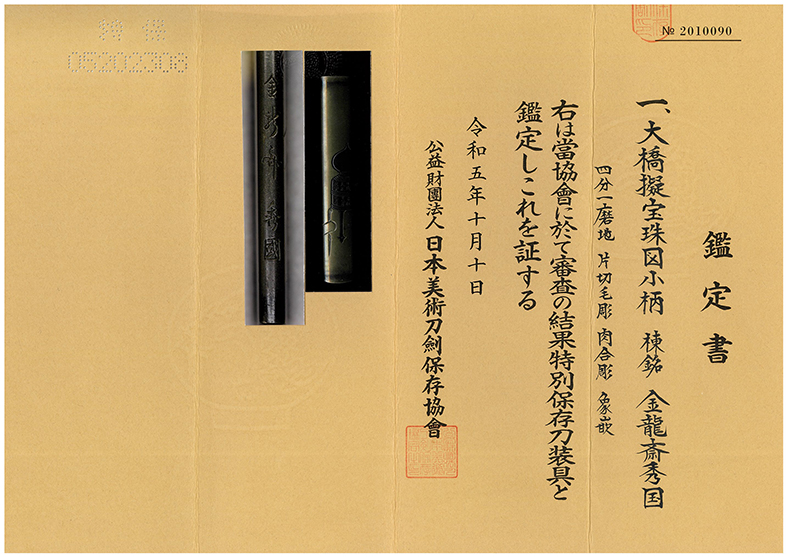 № 2010090
鑑定書
一、大橋擬宝珠図小柄 棟銘 金龍斎秀国
四分一磨地 片切毛彫 肉合彫 象嵌
右は當協會に於て審査の結果特別保存刀装具と
鑑定しこれを証する
令和五年十月十日
公益財團法人 日本美術刀劍保存協會
金龍斎秀國
05202306